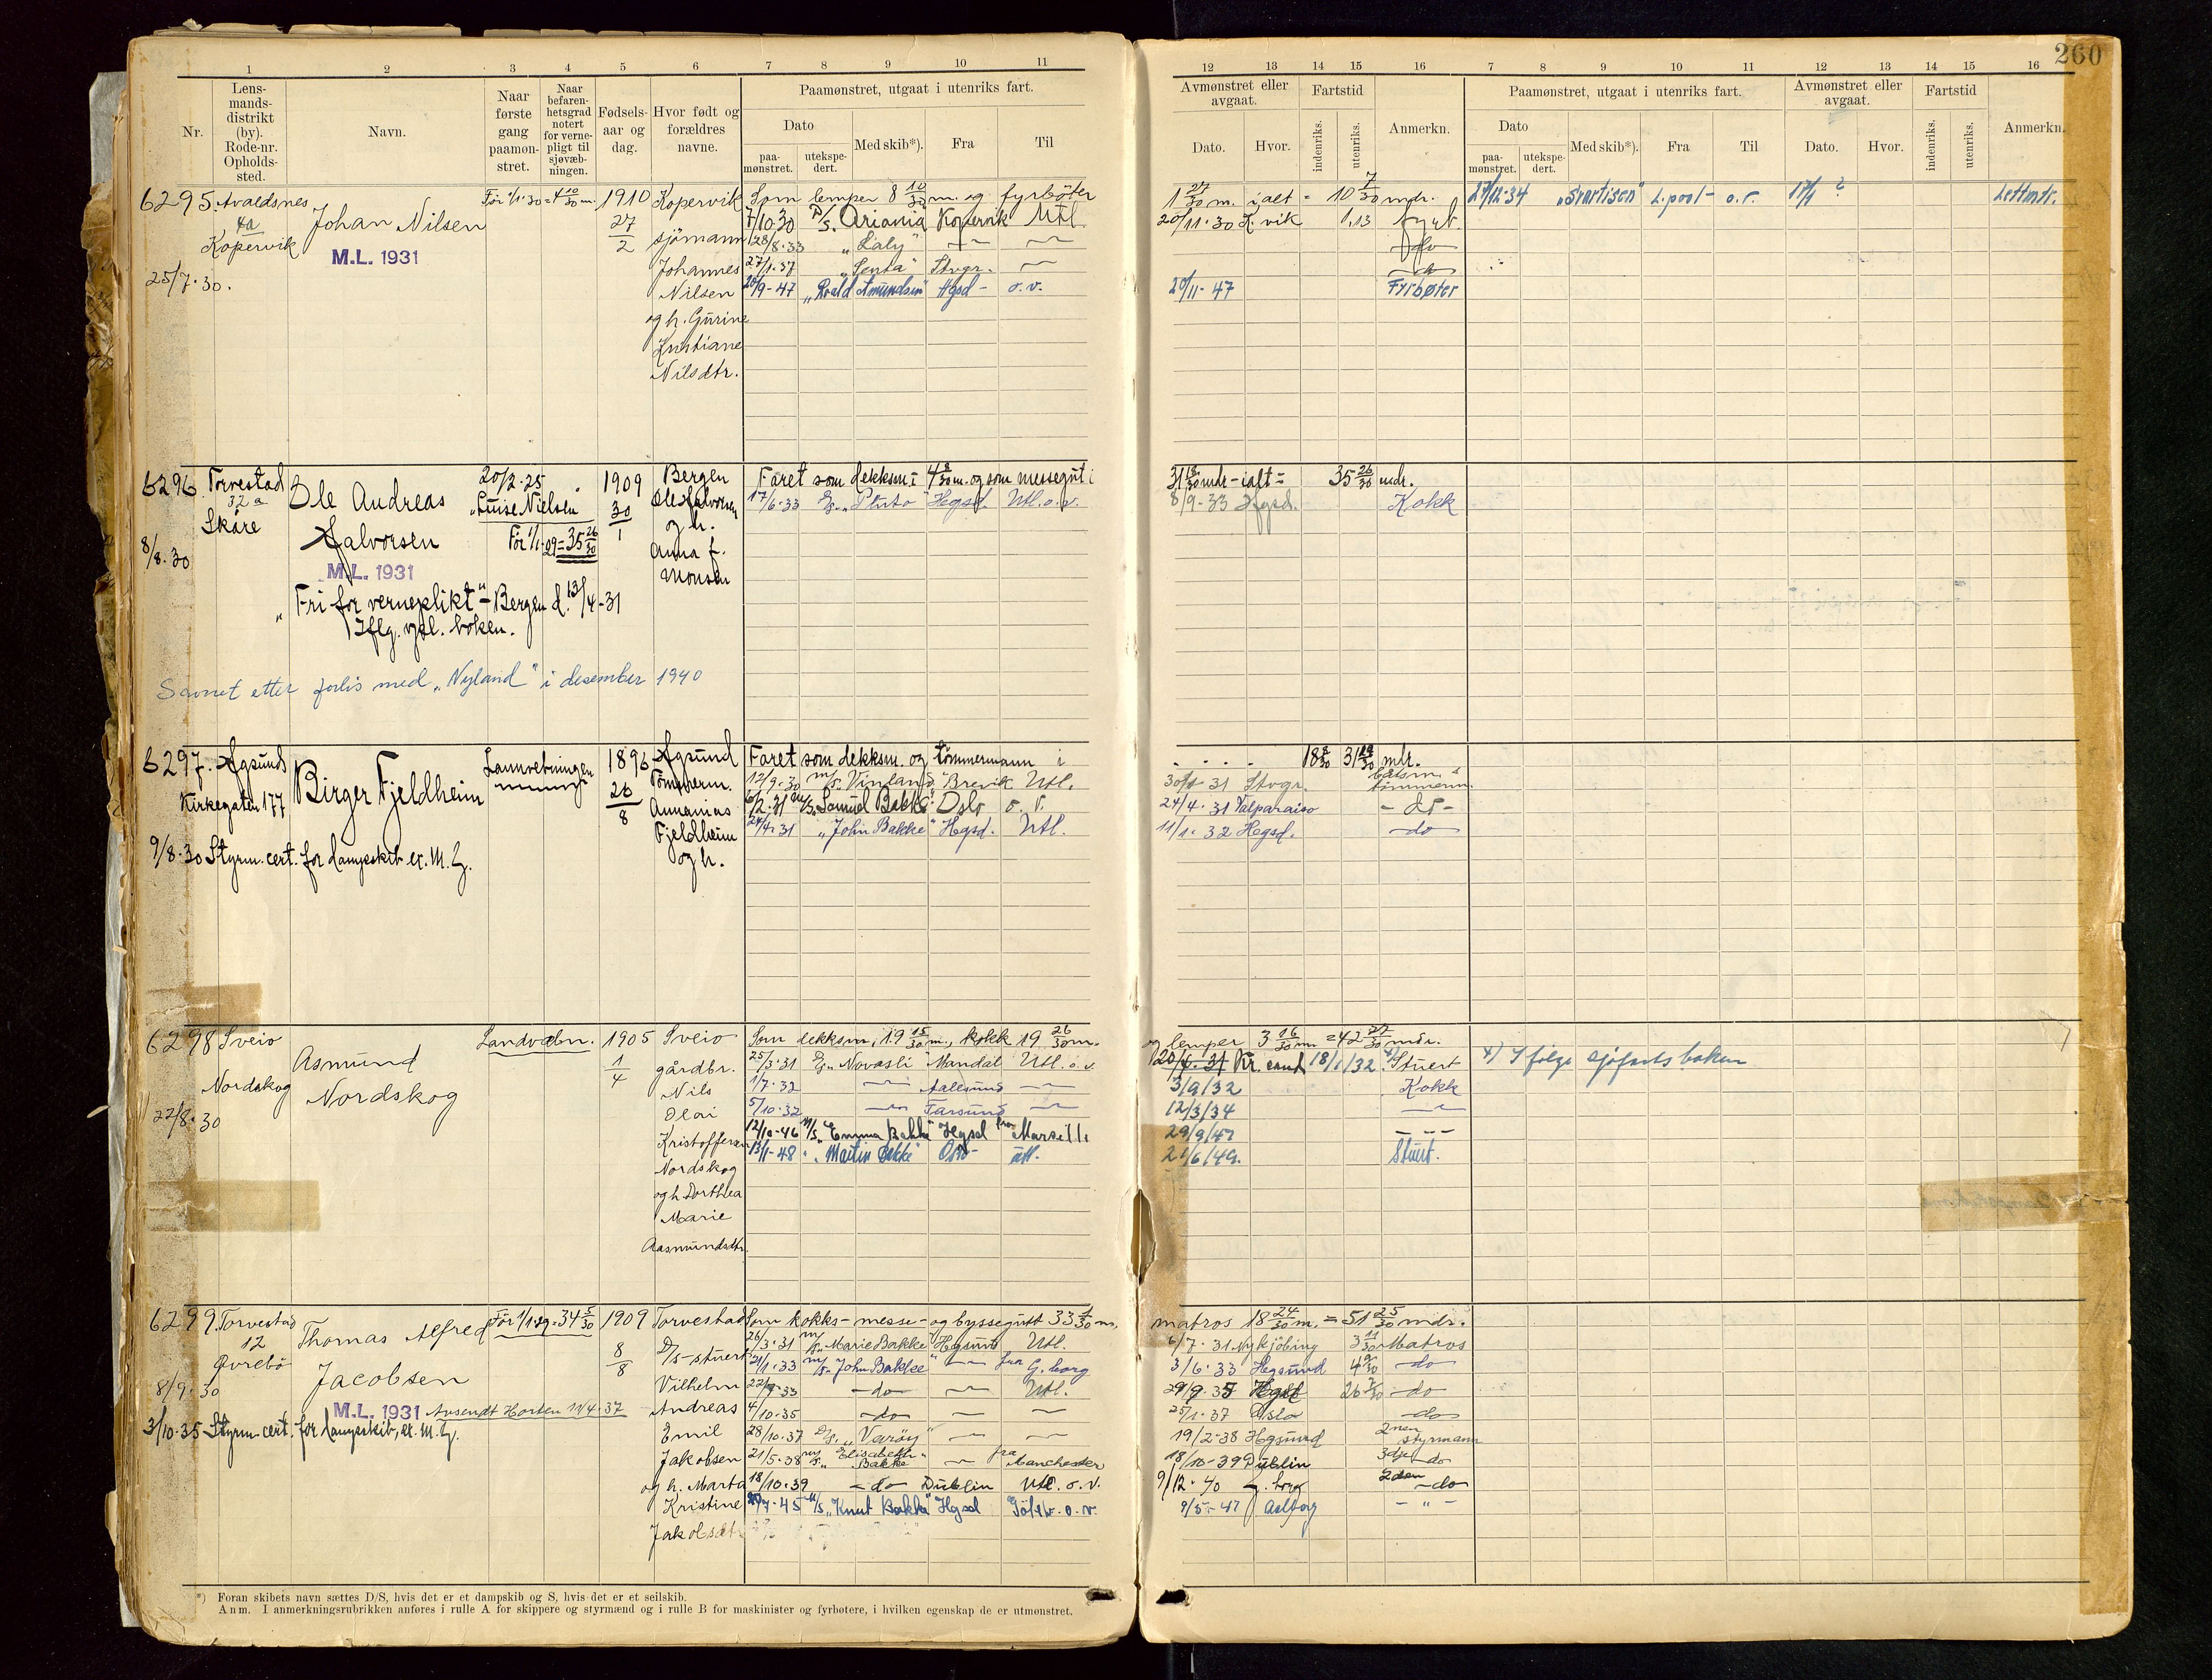 260
1 2 3 4 5 6 7 8 9 10 11
12 13 14 15 16 7 8 9 10 11 12 13 14 15 16
Nr.
Lens-
mands-
distrikt
(by).
Rode-nr.
Opholds-
sted.
Navn.
Naar
første
gang
paamøn-
stret.
Naar
befaren-
hetsgrad
notert
for verne-
pligt til
sjøvæb-
ningen.
Fødsels-
aar og
dag.
Hvor født og
forældres
navne.
Paamønstret, utgaat i utenriks fart.
Dato
paa-
mønstret.
utekspe-
dert.
Med skib*).
Fra
Til
Avmønstret eller
avgaat.
Dato.
Hvor.
Fartstid
indenriks.
utenriks.
Anmerkn.
Paamønstret, utgaat i utenriks fart.
Dato
paa-
mønstret.
utekspe-
dert.
Med skib*).
Fra
Til
Avmønstret eller
avgaat.
Dato.
Hvor.
Fartstid
indenriks.
utenriks.
Anmerkn.
6295. Avaldsnes
4a
Kopervik
25/7.30.
Johan Nilsen
M.L. 1931
Før 1/1.30 = 4 10/30 m.
1910
27
2
Kopervik
sjømann
Johannes
Nilsen
og h. Gurine
Kristiane
Nilsdtr.
Som lemper 8 10/30 m. og fyrbøter
1 27/30 m. ialt = 10 7/30 mdr.
7/10 30 D/S. Ariania Kopervik Utl
20/11.30 K.vik 1,13 fyrb.
28/8.33 "Laly" — —
do
27/1.37 "Senta" Stvgr. —
20/9-47 "Roald Amundsen" Hgsd - o.v.
20/11-47 Fyrbøter
27/12-34 "Svartisen" L.pool - o.v. 17/4 ? Lettmtr.
6296 Torvestad
32a
Skåre
8/8.30
Ole Andreas
Halvorsen
M.L. 1931
20/2-25
"Luise Nielsen"
Før 1/1.29 = 35 26/30
1909
30
1
Bergen
Ole Halvorsen
og h.
Anna f.
Monsen
"Fri for verneplikt" - Bergen d. 13/4-31
Iflg. vpl. boken.
Savnet etter forlis med "Nyland" i desember 1940
Faret som dekksm. i 4 8/30 m. og som messegut i
31 18/30 mdr - ialt = 35 26/30 mdr.
17/6-33 D/S. "Pluto" Hegsd. Utl. o. v.
8/9-33 Hfgsd. Kokk
6297. Hgsund
Kirkegaten 177
9/8.30 Styrm. cert. for dampskib er. M.L.
Birger Fjeldheim
Landvebningen
1896
26
8
Hgsund
Tømmerm.
Annanias
Fjeldheim
og h.
Faret som dekksm. og tømmermann i
mdr.
12/9.30 m/s. Vinland Brevik Utl.
30/1-31 Stvgr. båtsm. &
tømmerm.
"Samuel Bakke" Oslo o. v.
24/4.31 Valparaiso - do -
24/4.31 "John Bakke" Hegsd. Utl.
11/1.32 Hegsd. do
6298 Sveio
Nordskog
22/8.30
Asmund
Nordskog
Landvebn.
1905
1
4
Sveio
gårdbr.
Nils
Olai
Kristoffersen
Nordskog
og h. Dorthea
Marie
Aasmundsdtr.
Som dekksm. 19 15/30 m, kokk 19 26/30 m.
og lemper 3 16/30 m. = 42 27/30 mdr.
25/3.31 D/S. Novasli Mandal Utl. o. v.
20/6.31 Kr. sand 18/1/32 x) Stuert
x) I følge sjøfartsboken
1/7.32 — Aalesund —
3/9/32 Kokk
5/10.32 — Farsund —
12/3/34 —
12/10-46 M/S. "Emma Bakke" Hgsd fra Marseille
29/9/47 — — —
13/1-48 " "Martin Bakke" Oslo - utl.
21/6/49. Stuert.
6299. Torvestad
12
Øvrebø
8/9.30
Thomas Alfred
Jacobsen
M.L. 1931 Avsendt Horten 11/4.37
3/10.35 Styrm. cert. for dampskib, er. M.L.
Før 1/1.29 = 34 5/30
1909
8
8
Torvestad
D/s-stuert
Vilhelm
Andreas
Emil
Jakobsen
og h. Marta
Kristine
Jakobsdt
Som kokks- messe- og byssegutt 33 1/30 m,
matros 18 24/30 m. = 51 25/30 mdr.
26/3.31 m/s. Marie Bakke Hgsund Utl.
6/7.31 Nykjøbing 3 11/30 Matros
21/1.33 m/s. John Bakke — fra G.borg
3/6.33 Hegsund do
22/9.33 do — Utl.
29/9.35 Hgsd do
4/10.35 do — —
25/1.37 Oslo do
28/10.37 D/S. "Varøy" — —
19/2-38 Hgsund 2nen
styrmann
21/5-38 m/s. "Elisabeth
Bakke" — fra Manchester
18/10-39 Dublin 3dje do
18/10.39 do Dublin Utl. o. v.
9/12.40 G. borg 2den do
M/S. "Knut Bakke" Hgsd Gøtebr. o. v.
9/5-47 Aalborg - " -
*) Foran skibets navn sættes D/S, hvis det er et dampskib og S, hvis det er et seilskib.
Anm. I anmerkningsrubrikken anføres i rulle A for skippere og styrmænd og i rulle B for maskinister og fyrbøtere, i hvilken egenskap de er utmønstret.